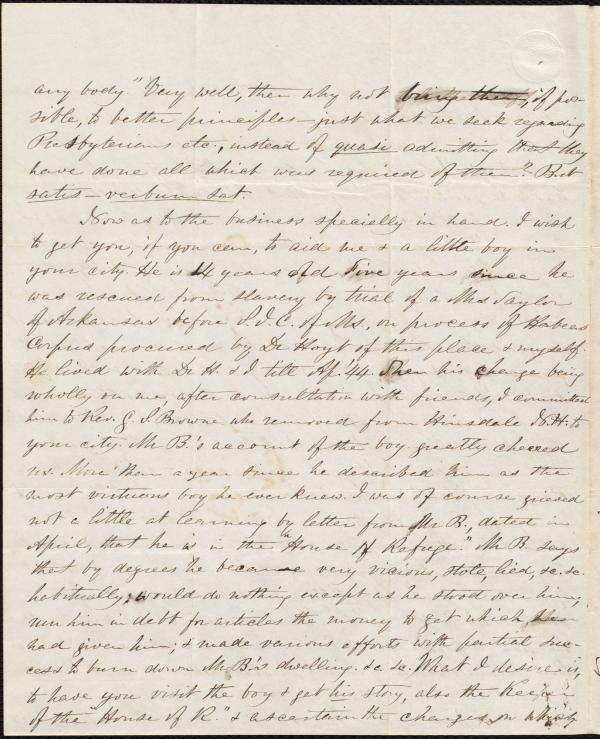 any body." Very well, then why not bring them, if pos-
sible, to better principles – just what we seek regarding
Presbyterians etc., instead of quasi admitting that they
have done all which was required of them". But
satis – verbum sat.
Now as to the business specially in hand. I wish
to get you, if you can, to aid me & a little boy in
your city. He is 14 years old. Five years since he
was rescued from slavery by trial of a Mrs Taylor
of Arkansas before S. J. C. of Ms., on process of Habeas
Corpus procured by Dr Hoyt of this place & myself.
He lived with Dr H. & I till Ap. 44. Then his charge being
wholly on me, after consultation with friends, I committed
him to Rev. G. S. Browne who removed from Hinsdale N.H. to
your city. Mr B.'s account of the boy greatly cheered
us. More than a year since he described him as the
most virtuous boy he ever knew. I was of course grieved
not a little at learning by letter from Mr B., dated in
April, that he is in the "House of Refuge." Mr B. says
that by degrees he became very vicious, stole, lied, &c. &c.
habitually; would do nothing except as he stood over him;
run him in debt for articles the money to get which he
had given him; & made various efforts with partial suc-
cess to burn down Mr B.'s dwelling. &c. &c. What I desire is,
to have you visit the boy & get his story, also the Keeper
of the "House of R." & ascertain the charges on which